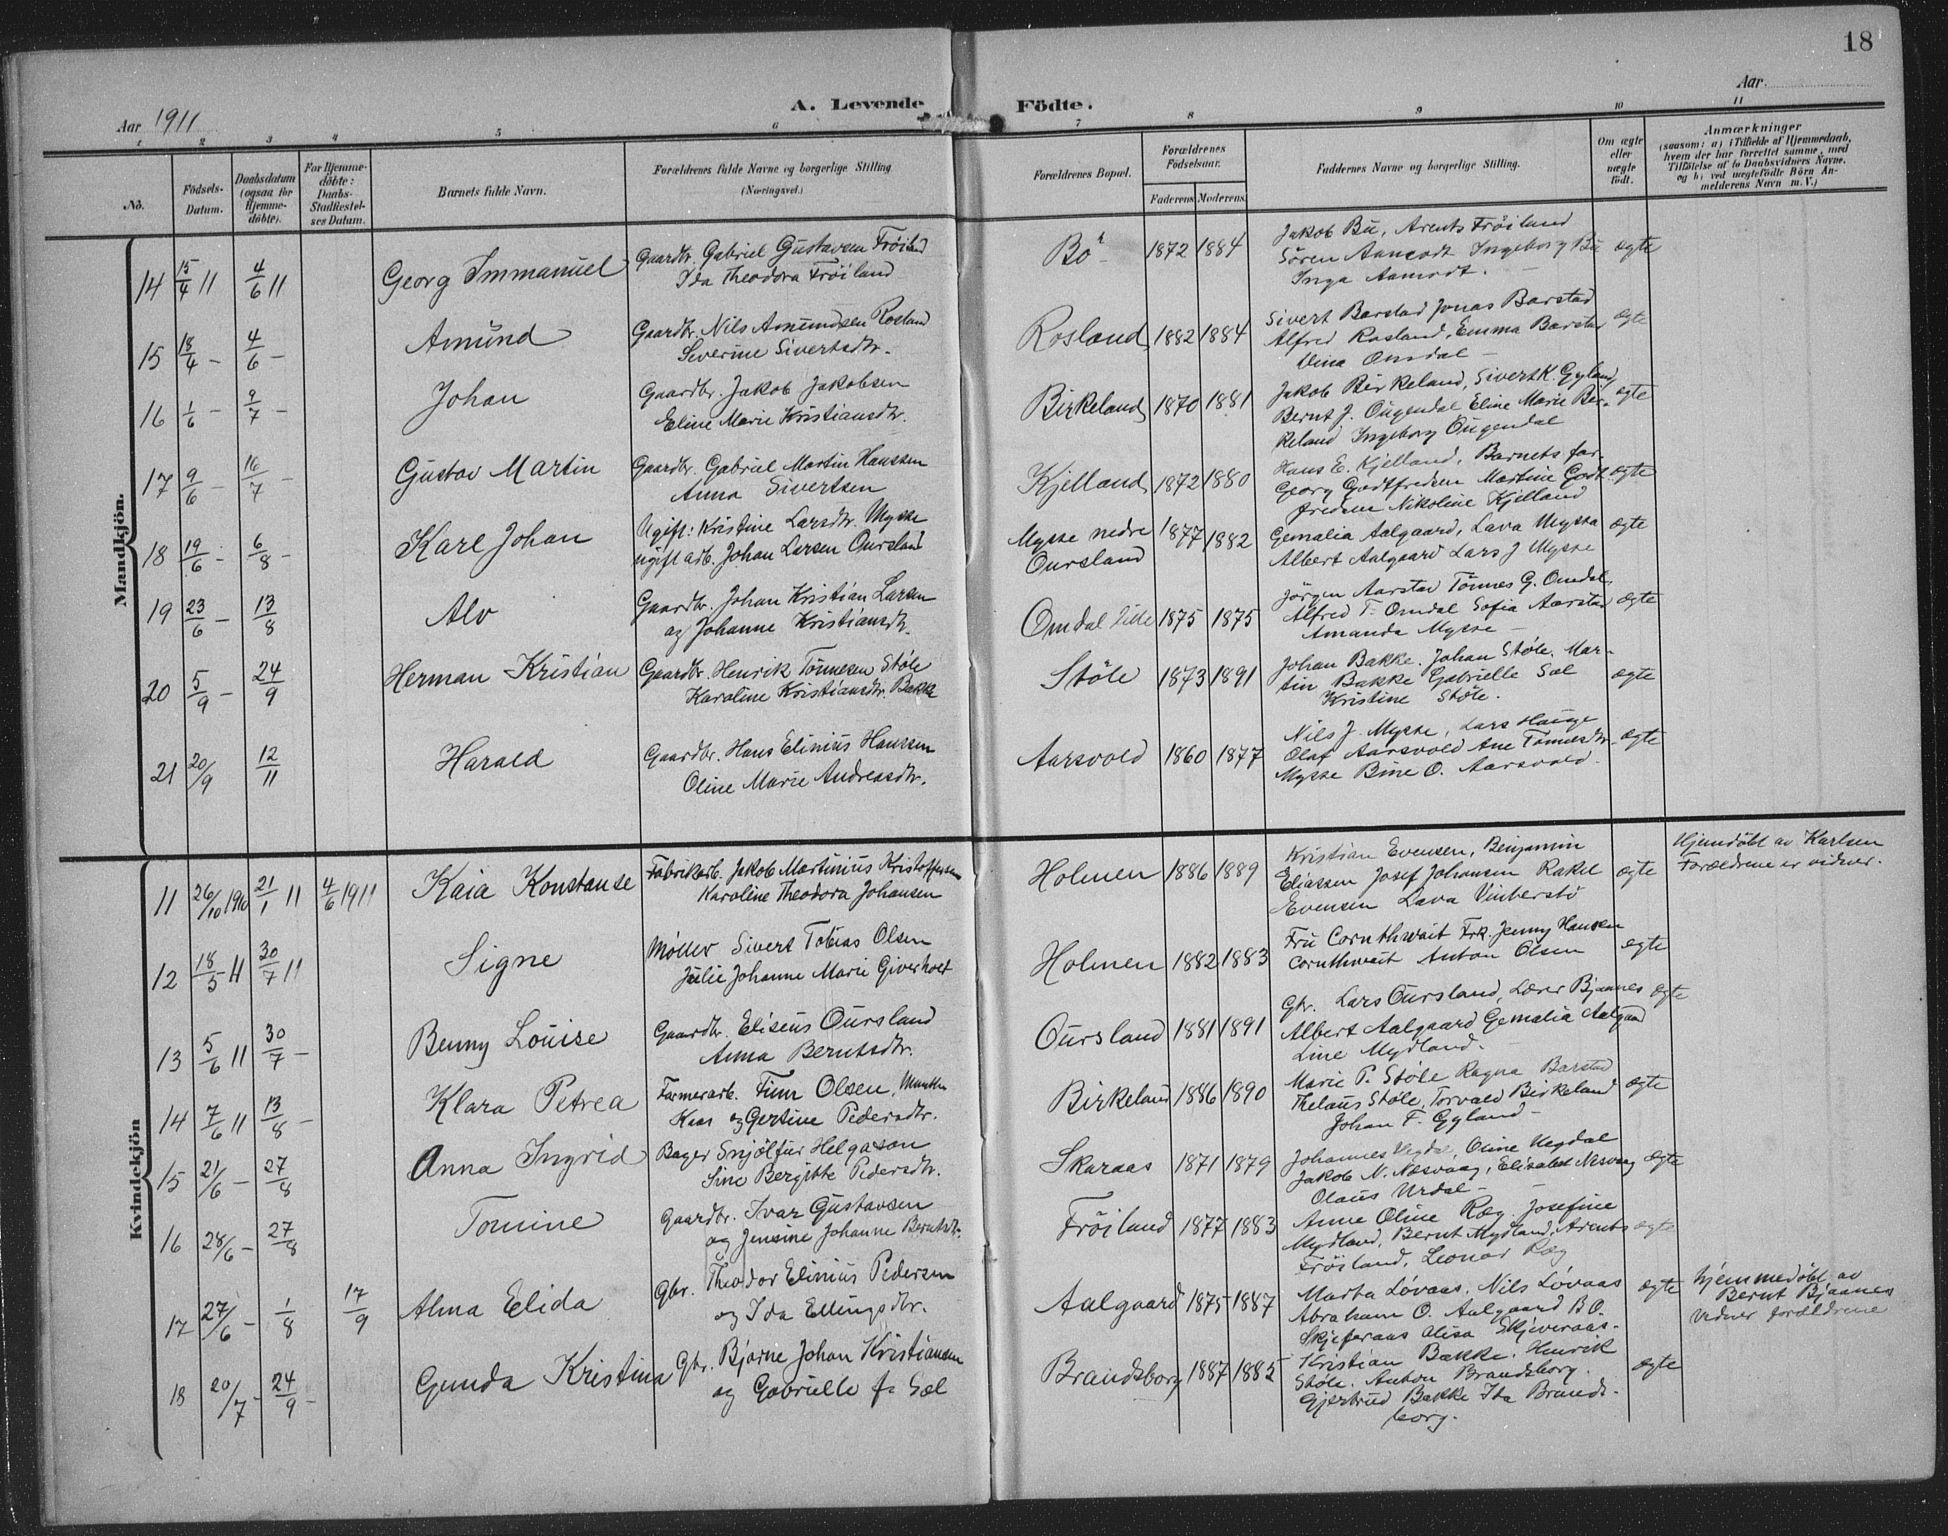 18
Aar 1911
A. Levende Födte.
Aar
1 2 3 4 5 6 7 8 9 10 11
No.
Födsels-
Datum.
Daabsdatum
(ogsaa for
Hjemme-
döbte).
For Hjemme-
döbte:
Daabs-
Stadfæstel-
ses Datum.
Barnets fulde Navn.
Forældrenes fulde Navne og borgerlige Stilling
(Næringsvei.)
Forældrenes Bopæl.
Forældrenes
Födselsaar.
Faderens Moderens
Faddernes Navne og borgerlige Stilling.
Om ægte
eller
uægte
födt.
Anmærkninger
(saasom: a) i Tilfælde af Hjemmedaab,
hvem der har forrettet samme, med
Tilföielse af to Daabsvidners Navne,
og b) ved uægtefödte Börn An-
melderens Navn m. V.)
Mandkjön.
14 15/4 11 4/6 11 Georg Immanuel
Gaardbr. Gabriel Gustavsen Fröiland
Ida Theodora Fröiland
Bö 1872 1884
Jakob Bu, Arents Fröiland
Sören Aamodt Ingeborg Bu
Inga Aamodt.
ægte
15 18/4 – 4/6 – Amund
Gaardbr. Nils Amundsen Rosland
Severine Sivertsdtr.
Rosland 1882 1884
Sivert Barstad Jonas Barstad
Alfred Rosland, Emma Barstad
Omdal –
ægte
16 1/6 – 9/7 – Johan
Gaardbr. Jakob Jakobsen
Eline Marie Kristiansdtr.
Birkeland 1870 1881
Jakob Birkeland, Sivert K. Gyland
Bernt J. Ougendal Eline Marie Bir-
keland Ingeborg Ougendal
ægte
17 9/6 – 16/7 – Gustav Martin
Gaardbr. Gabriel Martin Hanssen
Anna Sivertsen
Kjelland 1872 1880
Hans E. Kjelland, Barnets far
Georg Godtfredsen Martine Godt-
fredsen Nikoline Kjelland
ægte
18 19/6 – 6/8 – Karl Johan
Ugift: Kristine Larsdtr. Mysse
ugift arb. Johan Larsen Oursland
Mysse nedre
Oursland
1877 1882
Gemalia Aalgaard, Lava Mysse
Albert Aalgaard Lars J Mysse
ægte
19 23/6 – 13/8 Alv
Gaardbr. Johan Kristian Larsen
og Johanne Kristiansdtr.
Omdal 1875 1875
Jörgen Aarstad Tönnes G. Omdal,
Alfred T. Omdal Sofia Aarstad
Amanda Mysse –
ægte
20 5/9 – 24/9 Herman Kristian
Gaardbr. Henrik Tönnesen Stöle
Karoline Kristiansdtr. Bakke
Stöle 1873 1891
Johan Bakke. Johan Stöle. Mar-
tin Bakke Gabrielle Sæl
Kristine Stöle.
ægte
21 20/9 12/11 Harald
Gaardbr. Hans Elinius Hanssen
Oline Marie Andreasdtr.
Aarsvold 1860 1877
Nils J. Mysse, Lars Hauge
Olaf Aarsvold Ane Tönnesdtr.
Mysse Bine O. Aarsvold.
ægte
Kvindekjön
11 26/10 1910 21/1 11 4/6 1911 Kaia Konstanse
Fabrikarb. Jakob Martinius Kristoffersen
Karoline Theodora Johansen
Holmen 1886 1889
Kristian Evensen, Benjamin
Eliassen Josef Johansen Rakel
Evensen Lava Vinterstö
ægte
Hjemdöbt av Karlsen
Forældrene er vidner.
12 18/5 11 30/7 11 Signe
Møller Sivert Tobias Olsen
Julie Johanne Marie Giverholt
Holmen 1882 1883
Fru Cornthwait Frk. Jenny Hansen
Cornthwait Anton Olsen
ægte
13 5/6 11 30/7 – Benny Louise
Gaardbr. Eliseus Oursland
Anna Berntsdtr.
Oursland 1881 1891
Gbr. Lars Oursland, Lærer Bjaanes
Albert Aalgaard Gemalia Aalgaard
Line Mydland.
ægte
14 7/6 11 13/8 – Klara Petrea
Farmerarb. Finn Olsen, Munthe
Kaas og Gertine Pedersdtr.
Birkeland 1886 1890
Marie P. Stöle Ragna Barstad
Thelaus Stöle, Torvald Birkeland
Johan F. Gyland –
ægte
15 21/6 – 27/8 Anna Ingrid
Bager Snjölfur Helgason
Sine Bergitte Pedersdtr.
Skaraas 1871 1879
Johannes Vegdal, Oline Vegdal
Jakob N. Næsvaag, Elisabet Nesvaag
Olaus Urdal –
ægte
16 28/6 – 27/8 Tomine
Gaardbr. Ivar Gustavsen
og Jensine Johanne Berntsdtr.
Fröiland 1877 1883
Anne Oline Ræg. Josefine
Mydland, Bernt Mydland, Arents
Fröisland, Leonar Ræg
ægte
17 27/6 – 1/8 17/9 Alma Elida
Gbr. Theodor Elinius Pedersen
og Ida Ellingsdtr.
Aalgaard 1875 1887
Marta Lövaas, Nils Lövaas
Abraham O. Aalgaard B O.
Skjeferaas Alisa Skjeveraas.
ægte
hjemmedöbt av
Bernt Bjaanes
Vidner forældrene
18 20/7 – 24/9 – Gunda Kristina
Gbr. Bjarne Johan Kristiansen
og Gabrielle f. Sæl
Brandsborg 1887 1885
Kristian Bakke. Henrik
Stöle. Anton Brandsborg.
Gjertrud Bakke Ida Brands-
borg.
ægte